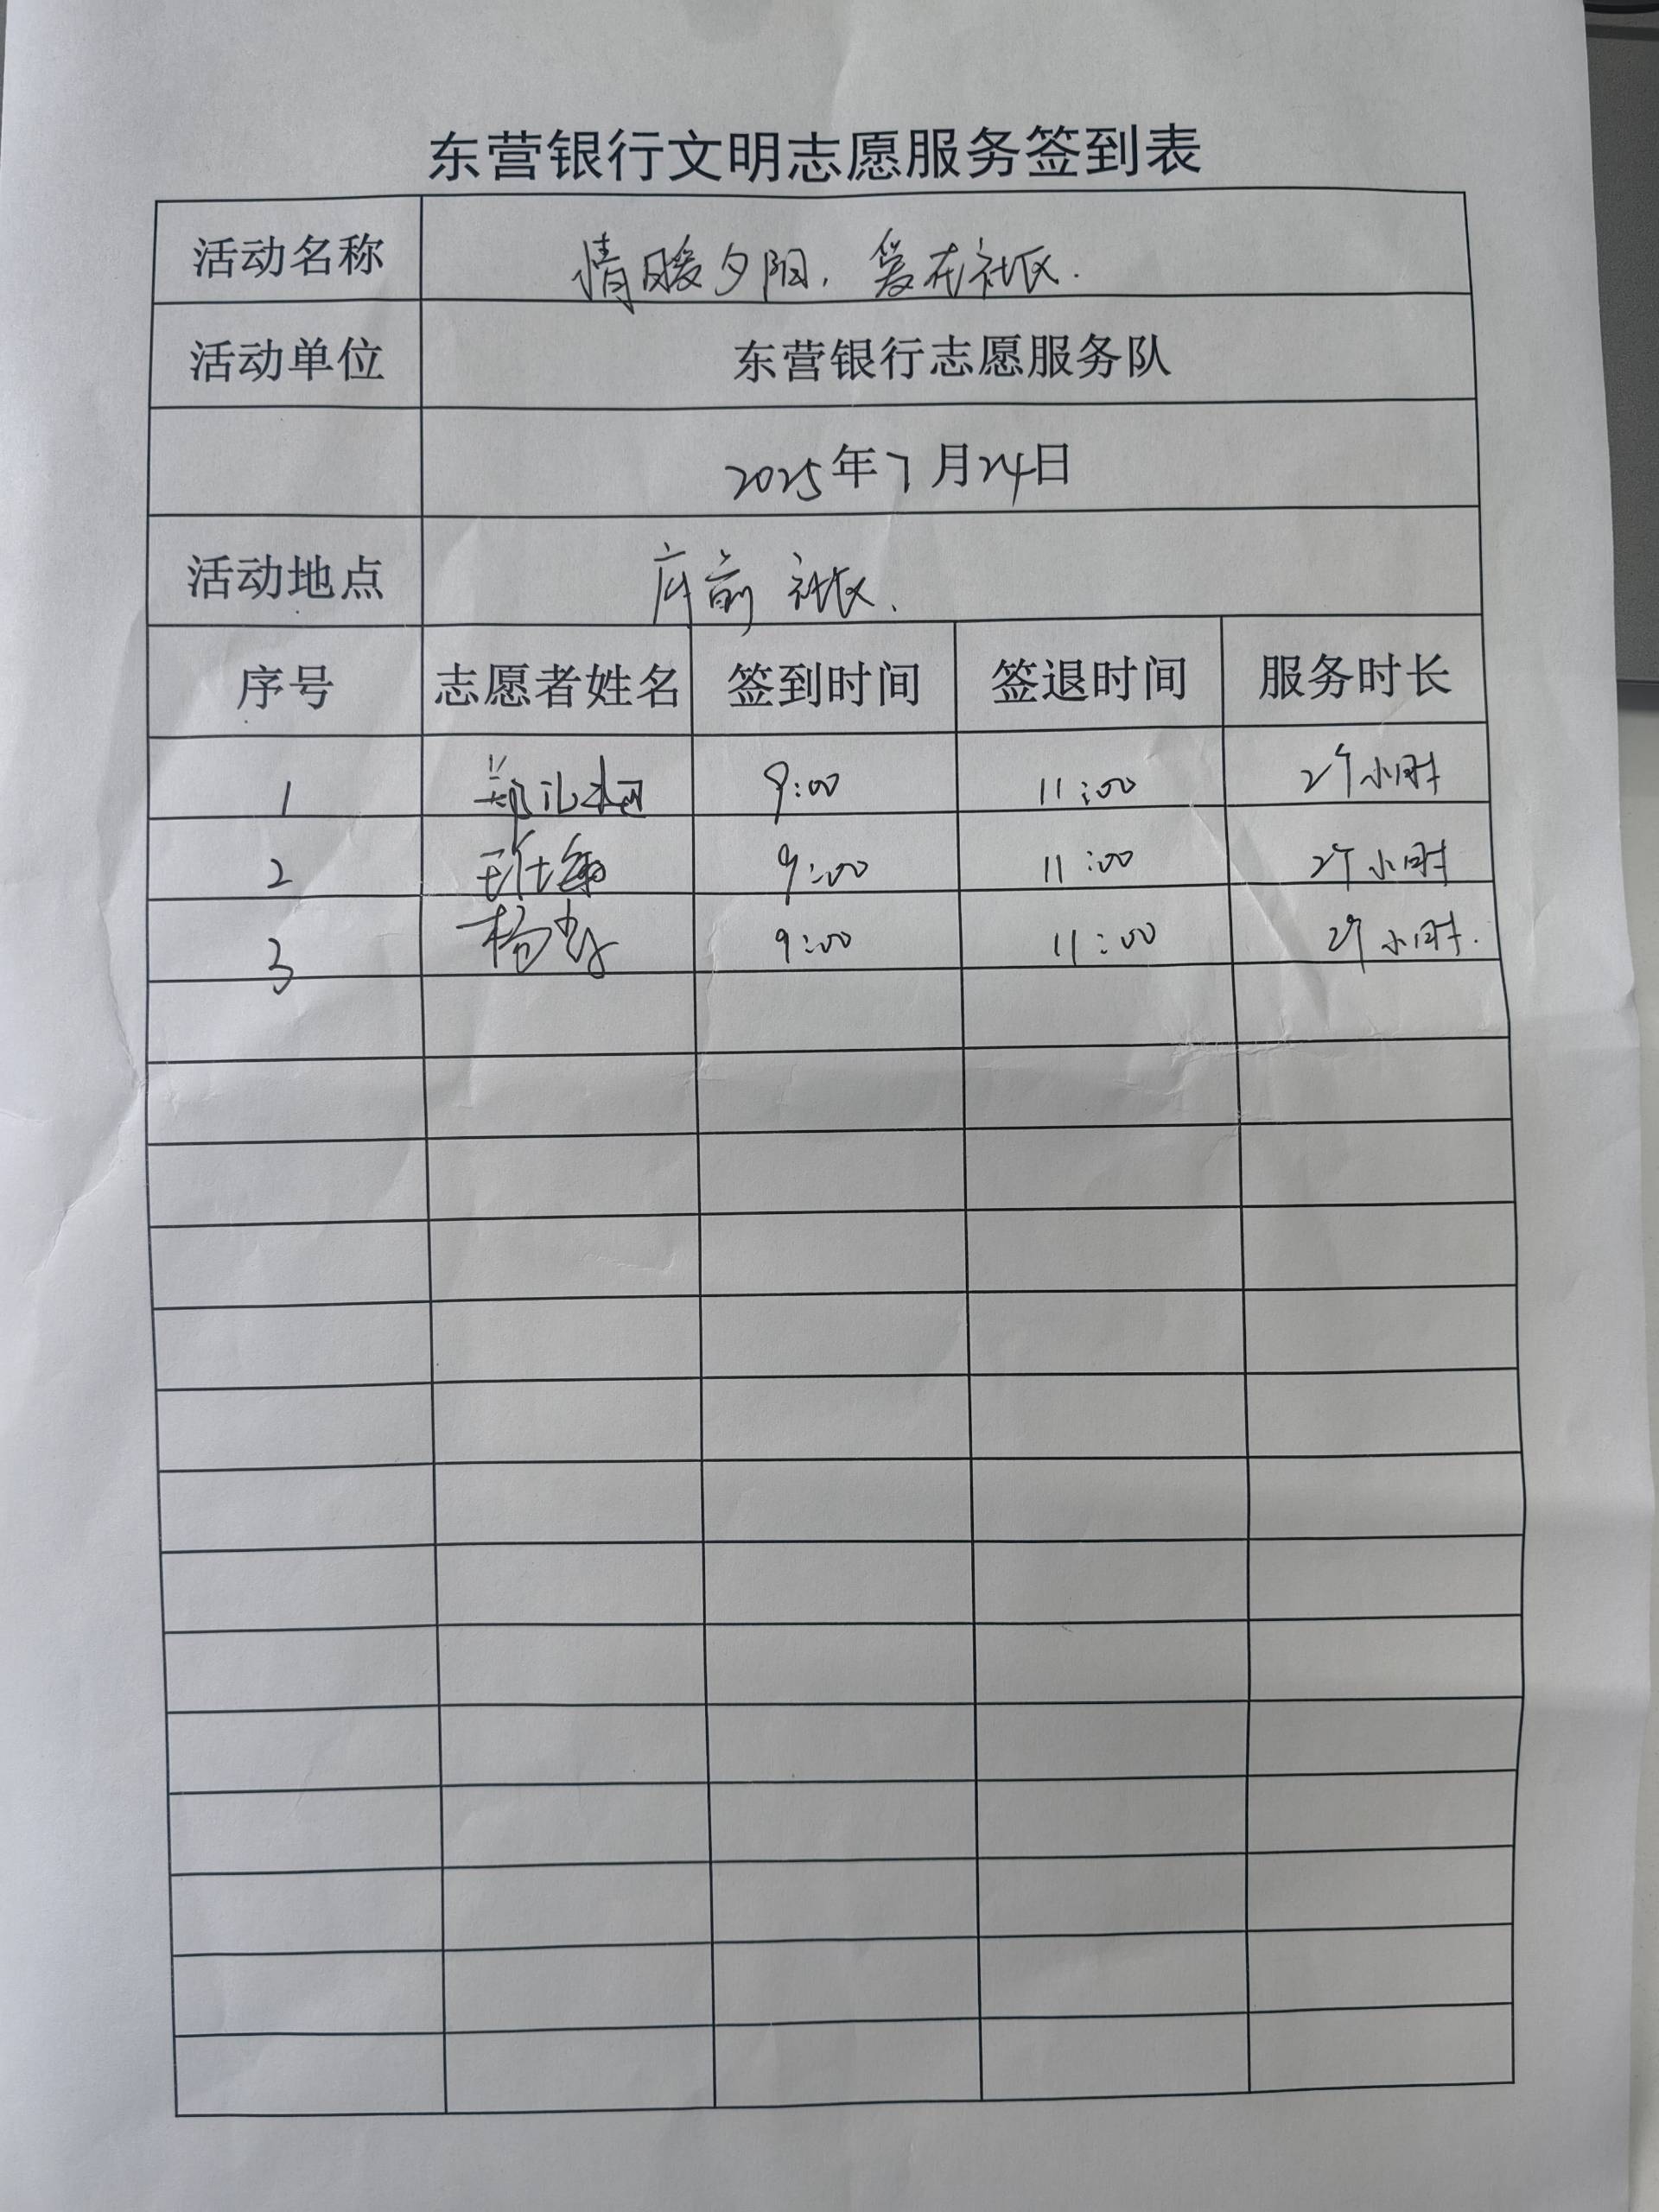 东营银行文明志愿服务签到表
活动名称 情暖夕阳，爱在社区.
活动单位 东营银行志愿服务队
2025年7月24日
活动地点 府前社区.
序号 志愿者姓名 签到时间 签退时间 服务时长
1 9:00 11:00 2个小时
2 9:00 11:00 2个小时
3 杨 9:00 11:00 2个小时.